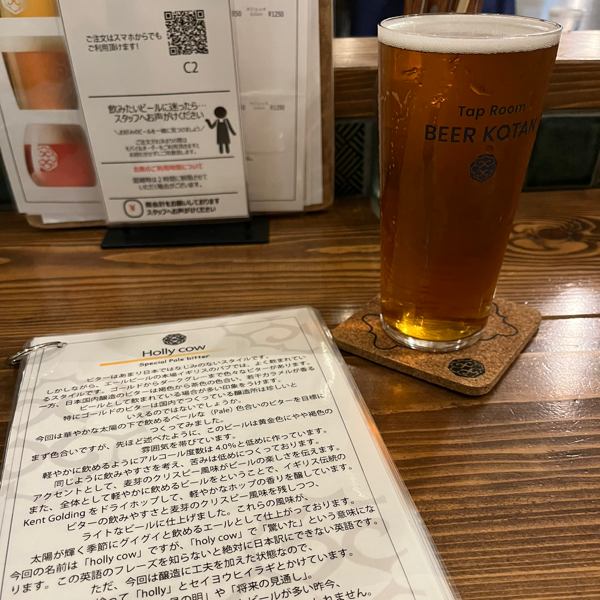 ご注文はスマホからでも
ご利用頂けます!
C2
飲みたいビールに迷ったら…
スタッフへお声がけください
¥1250
Tap Room
BEER KOTAN
Holly cow
Special Pale bitter
ビターはあまり日本ではなじみのないスタイルです。
しかしながら、エールビールの本場イギリスのパブでは、よく飲まれてい
るスタイルです。ゴールドからダークグレーまで色々なビターがあります。
一方、日本国内醸造のビターは褐色から茶色の色合い、若干カラメルが香る
ビールとして飲まれている場合が多い印象をうけます。
特にゴールドのビターは国内でつくっている醸造所は珍しいと
いえるのではないでしょうか。
今回は華やかな太陽の下で飲めるペールな（Pale）色合いのビターを目標に
つくってみました。
まず色合いですが、先ほど述べたように、このビールは黄金色にやや褐色の
雰囲気を帯びています。
軽やかに飲めるようにアルコール度数は4.0%と低めに作っています。
同じように飲みやすさを考え、苦みは低めにつくっております。
アクセントとして、麦芽のクリスピー風味がビールの楽しさを伝えます。
また、全体として軽やかに飲めるビールをということで、イギリス伝統の
Kent Goldingをドライホップして、軽やかなホップの香りを醸しています。
ビターの飲みやすさと麦芽のクリスピー風味を残しつつ、
ライトなビールに仕上げました。これらの風味が、
太陽が輝く季節にグイグイと飲めるエールとして仕上がっております。
今回の名前は「holly cow」ですが、「holy cow」で「驚いた」という意味にな
ります。この英語のフレーズを知らないと絶対に日本訳にできない英語です。
ただ、今回は醸造に工夫を加えた状態なので、
「holly」とセイヨウヒイラギとかけています。
の明」や「将来の見通し」。
ビールが多い昨今、
れません。